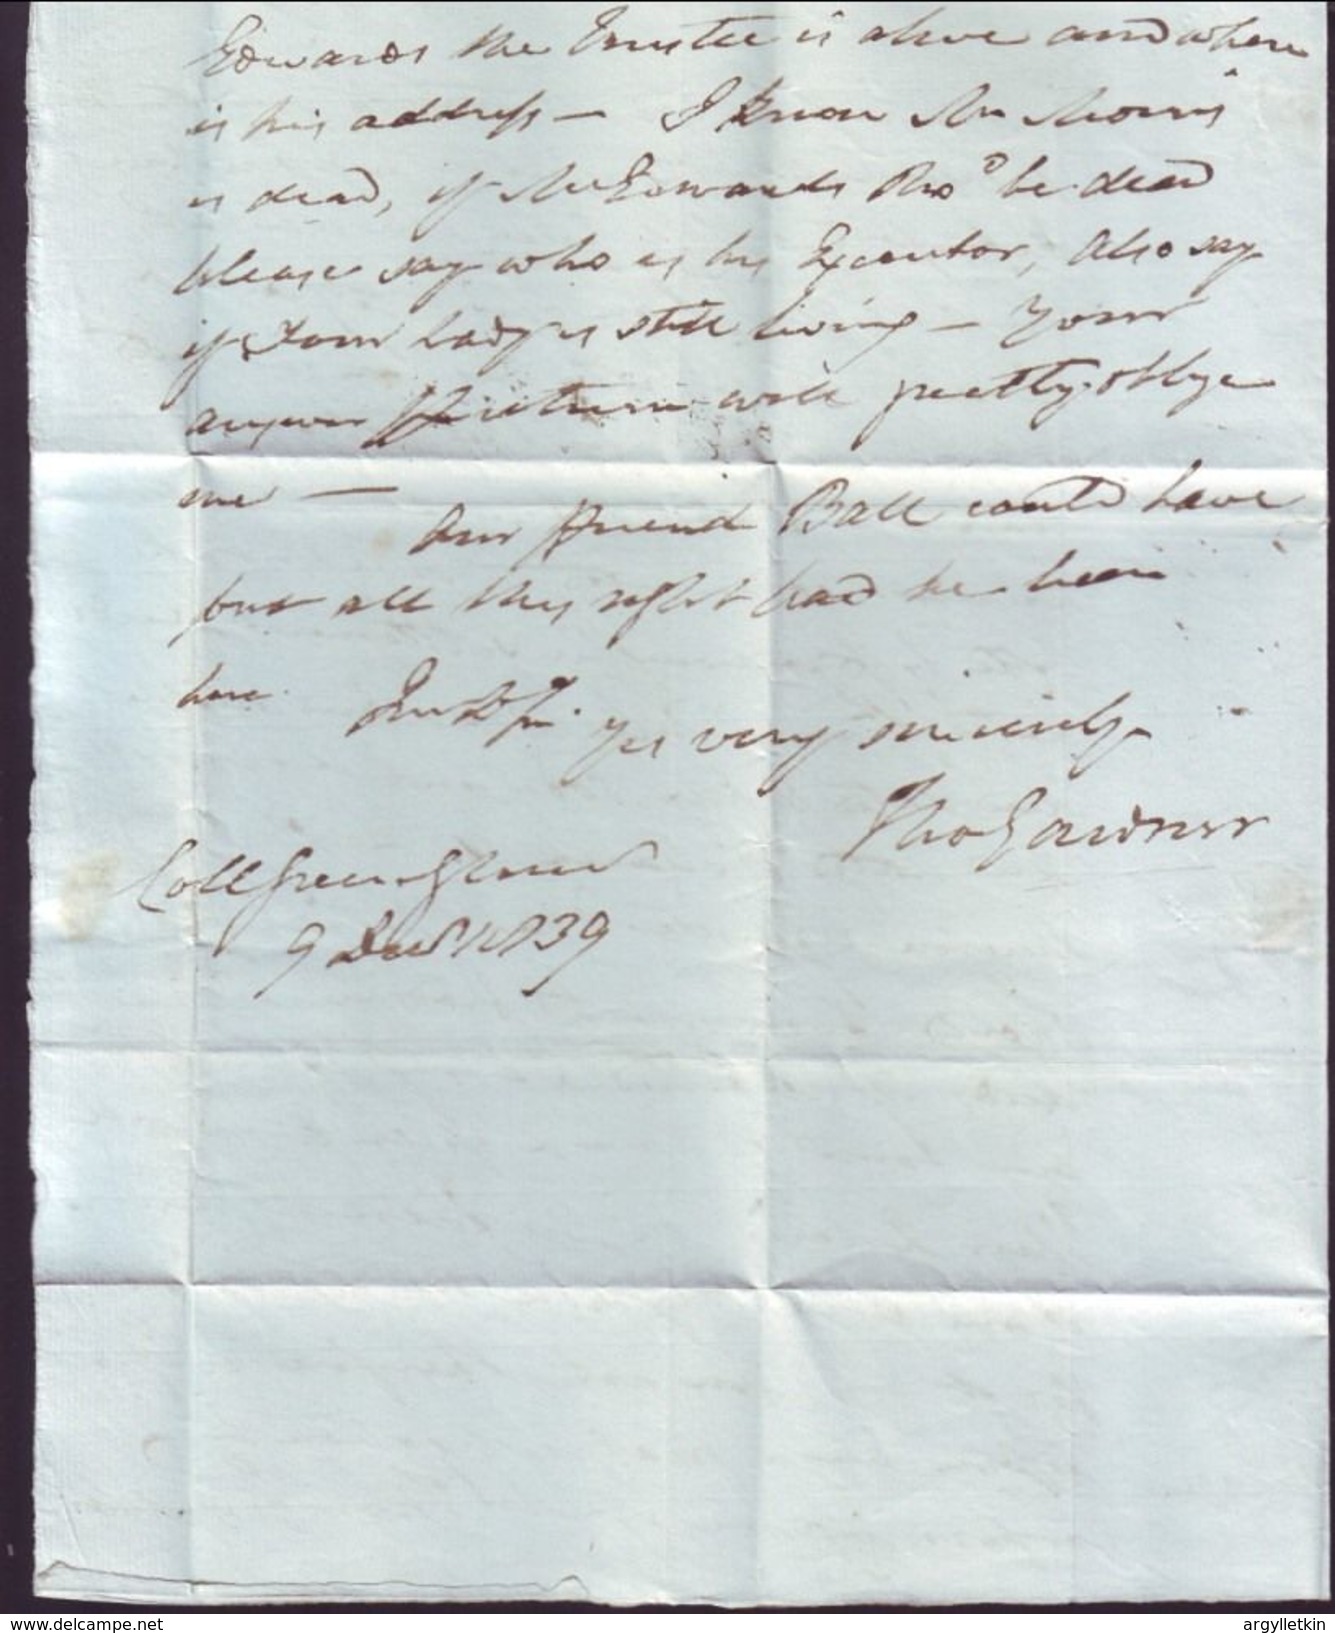 Edwards the Trustee is alive and where
is his address — I know Mr Morris
is dead, if Mr Edwards be dead
please say who is his Executor, also say
if your Lady is still living — Your
answer return will greatly oblige
me —
Our friend Ball could have
put all this right had he been
here.
Yrs very sincerely
Thos Gardner
Coll Green
9 Decr 1839
delcampe.net
argylletkin